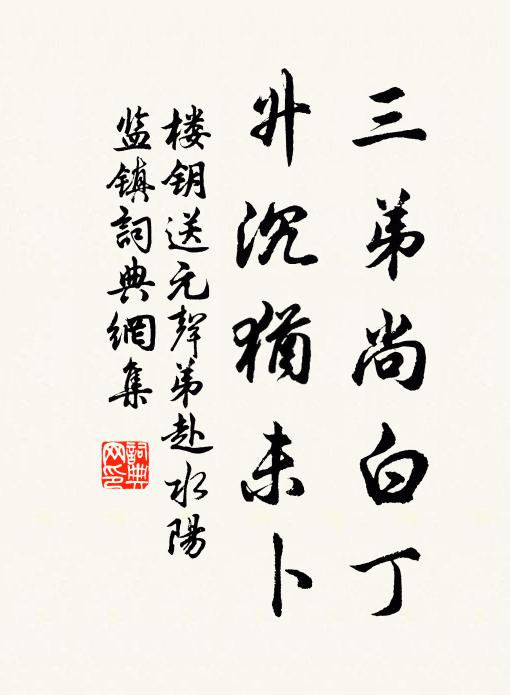 三弟尚白丁
升沉猶未卜
楼钥送元聲弟赴水陽
监镇詞典網集
詞典
网印